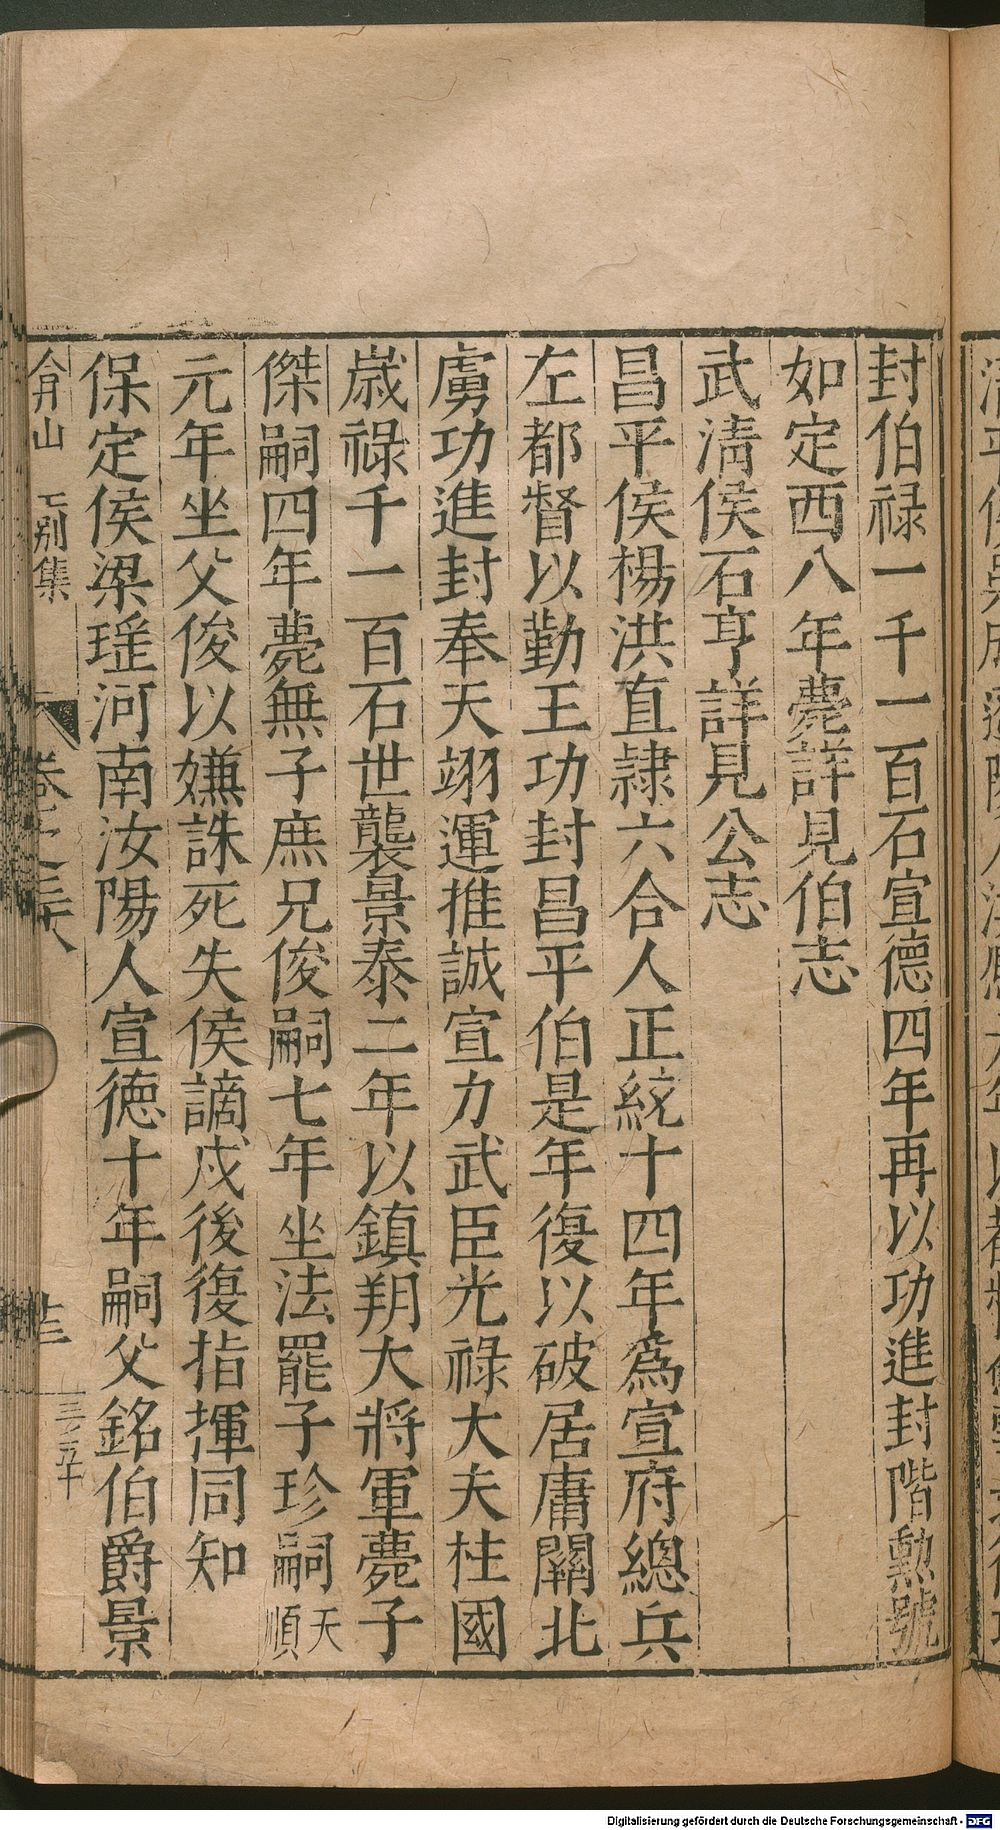 封伯祿一千一百石宣德四年再以功進封階勲號
如定西八年薨詳見伯志
武淸侯石亨詳見公志
昌平侯楊洪直隸六合人正統十四年爲宣府總兵
左都督以勤王功封昌平伯是年復以破居庸關北
虜功進封奉天翊運推誠宣力武臣光祿大夫柱國
嵗祿千一百石世襲景泰二年以鎮朔大將軍薨子
傑嗣四年薨無子庶兄俊嗣七年坐法罷子珍嗣天順
元年坐父俊以嫌誅死失侯謫戍後復指揮同知
保定侯梁瑶河南汝陽人宣德十年嗣父銘伯爵景
弇山 別集
Digitalisierung gefördert durch die Deutsche Forschungsgemeinschaft - DFG